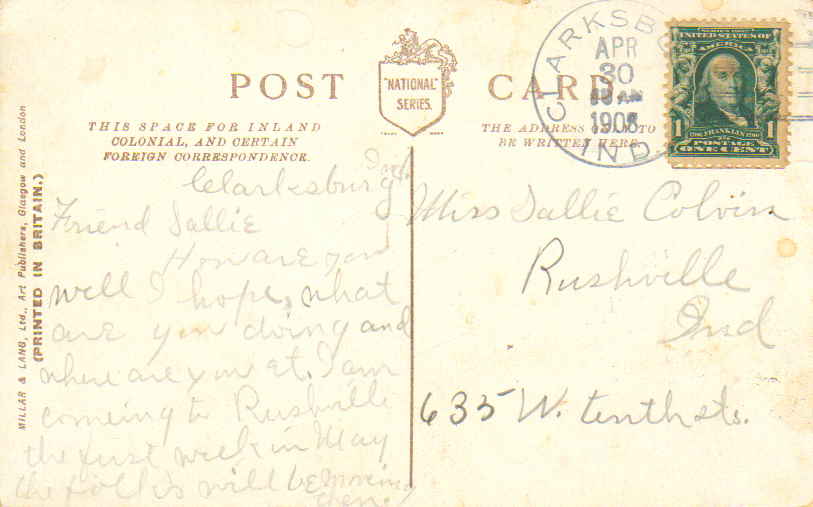 POST CARD
"NATIONAL"
SERIES.
THIS SPACE FOR INLAND
COLONIAL, AND CERTAIN
FOREIGN CORRESPONDENCE.
THE ADDRESS ONLY TO
BE WRITTEN HERE.
CLARKSBU
APR
30
AM
1908
IND
SERIES 1902
UNITED STATES OF
AMERICA
1 FRANKLIN 1
POSTAGE
ONE CENT
MILLAR & LANG, Ltd., Art Publishers, Glasgow and London
(PRINTED IN BRITAIN.)
Clarksburg Ind.
Friend Sallie
How are you
well I hope, what
are you doing and
where are you at. I am
comeing to Rushville
the first week in May
the folks will be moveing
then.
Miss Sallie Colvin
Rushville
Ind
635 W. tenth sts.